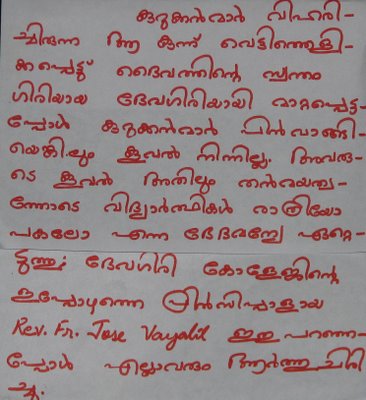 കുറുക്കൻമാർ വിഹരി-
ച്ചിരുന്ന ആ കുന്ന് വെട്ടിത്തെളി-
ക്കപ്പെട്ട് ദൈവത്തിന്റെ സ്വന്തം
ഗിരിയായ ദേവഗിരിയായി മാറ്റപ്പെട്ട-
പ്പോൾ കുറുക്കൻമാർ പിൻവാങ്ങി-
യെങ്കിലും കൂവൽ നിന്നില്ല. അവരു-
ടെ കൂവൽ അതിലും തൻമയത്വ-
ത്തോടെ വിദ്യാർത്ഥികൾ രാത്രിയോ
പകലോ എന്ന ഭേദമന്യേ ഏറ്റെ-
ടുത്തു: ദേവഗിരി കോളേജിന്റെ
ഇപ്പോഴത്തെ പ്രിൻസിപ്പാളായ
Rev. Fr. Jose Vayalil ഇതു പറഞ്ഞ-
പ്പോൾ എല്ലാവരും ആർത്തു ചിരി
ച്ചു.